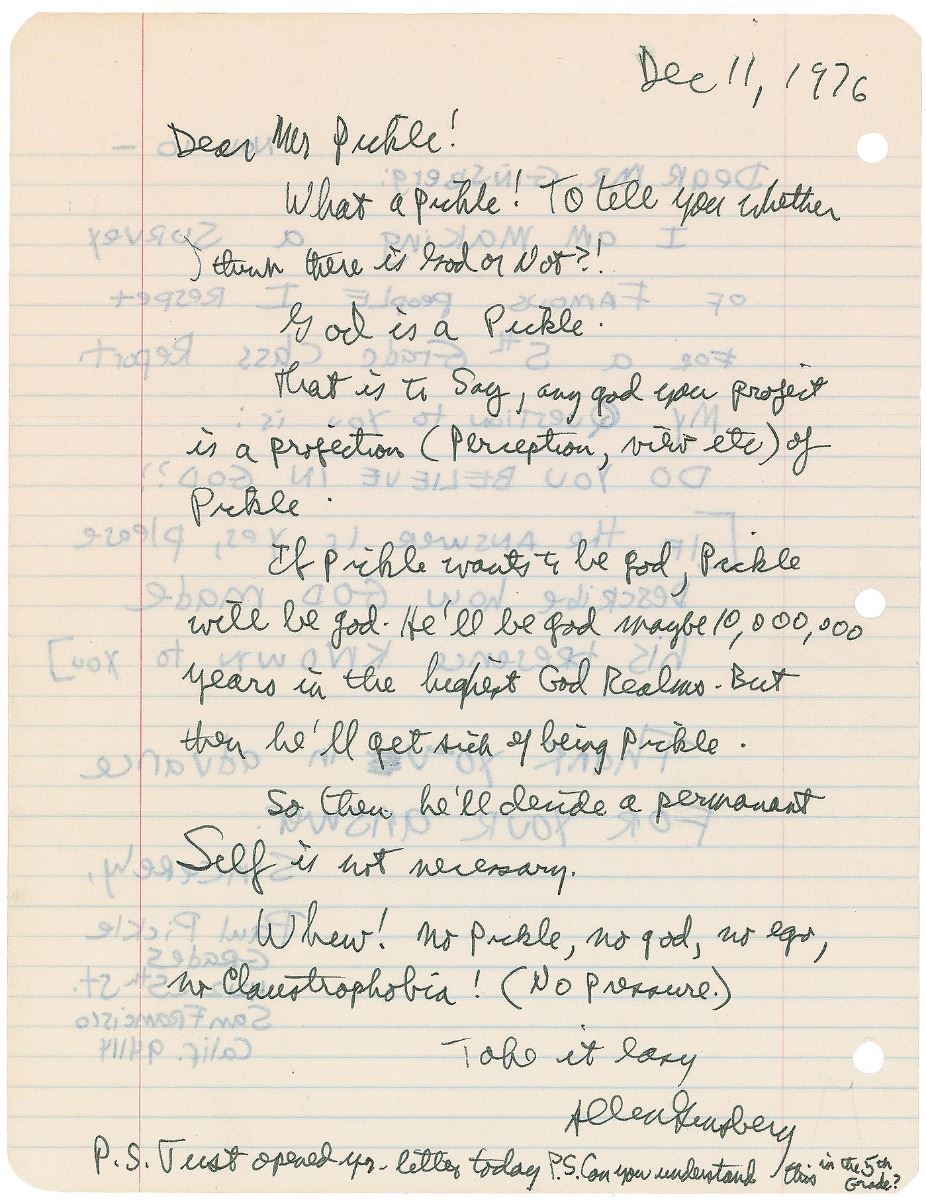 Dec 11, 1976
Dear Mr Pickle!
What a pickle! To tell you whether
I think there is God or Not?!
God is a Pickle.
That is to Say, any god you project
is a projection (Perception, view etc) of
Pickle.
If Pickle wants to be god, Pickle
will be god. He'll be god maybe 10,000,000
years in the highest God Realms. But
then he'll get sick of being Pickle.
So then he'll decide a permanant
Self is not necessary.
Whew! No Pickle, no god, no ego,
no Claustrophobia! (No Pressure.)
Take it Easy
Allen Ginsberg
P.S. Just opened yr. letter today P.S. Can you understand this in the 5th Grade?